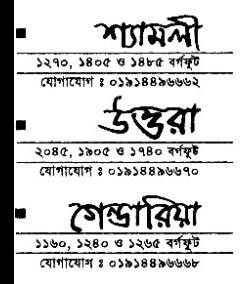 শ্যামলী
১২৭০, ১৪০৫ ও ১৪৮৫ বর্গফুট
যোগাযোগ ঃ ০১৯১৪৪৯৬৬৬২
উত্তরা
২০৪৫, ১৯০৫ ও ১৭৪০ বর্গফুট
যোগাযোগ ঃ ০১৯১৪৪৯৬৬৭০
গেন্ডারিয়া
১১৬০, ১২৪০ ও ১২৬৫ বর্গফুট
যোগাযোগ ঃ ০১৯১৪৪৯৬৬৬৮